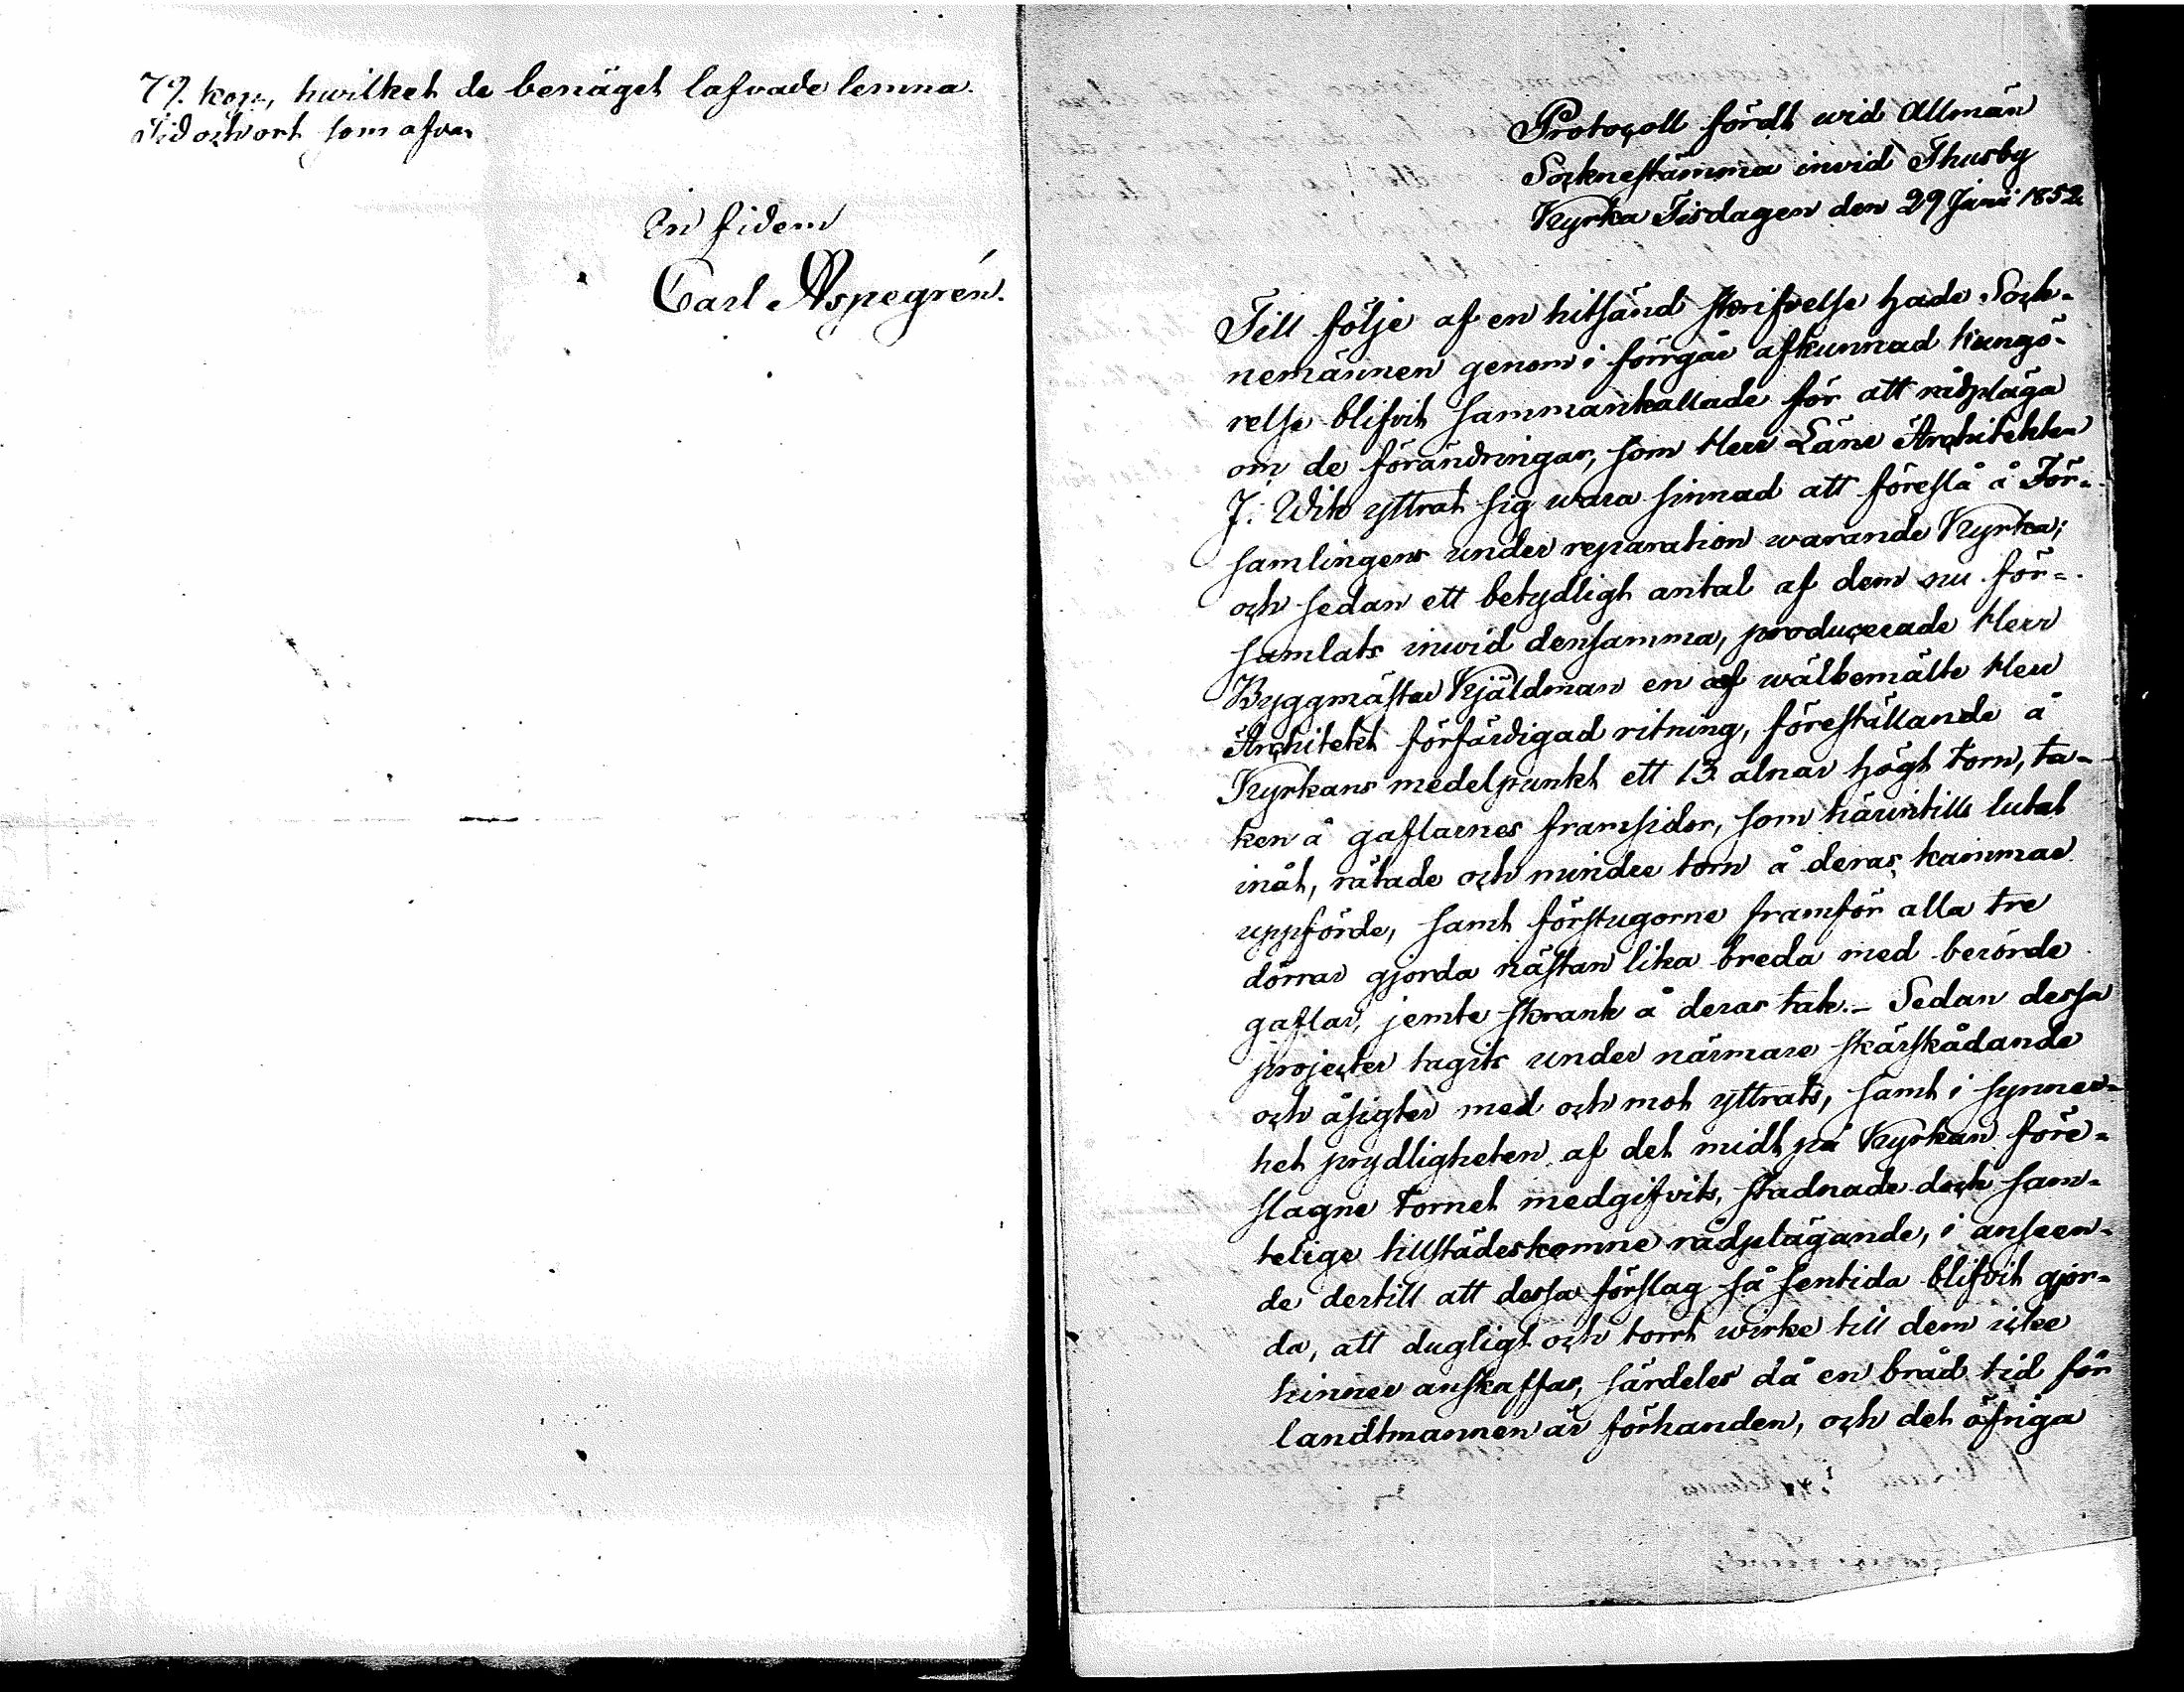 79. kop., hwilket de benäget lofvade lemna.
Tid och ort som ofvan
In fidem
Carl Aspegrén.
Protocoll fördt wid Allmän
Socknestämma invid Thusby
Kyrka Tisdagen den 29 Junii 1852
Till följe af en hitsänd skrifvelse hade Sock-
nemännen genom i förrgår afkunnad kungö-
relse blifvit sammankallade för att rådpläga
om de förändringar, som Herr Läns Architekten
J. Wik yttrat sig wara sinnad att föreslå å För-
samlingens under reparation warande Kyrka;
och sedan ett betydligt antal af dem nu för-
samlats invid densamma, producerade Herr
Byggmästar Kjäldman en af wälbemälte Herr
Architekt förfärdigad ritning, föreställande å
Kyrkans medelpunkt ett 13 alnar högt torn, ta-
ken å gaflarnes framsidor, som härintills lutat
inåt, rätade och mindre torn å deras kammar
uppförde, samt förstugorne framför alla tre
dörrar gjorda nästan lika breda med berörde
gaflar, jemte skrank å deras tak. - Sedan dessa
projecter tagits under närmare skärskådande
och åsigter med och mot yttrats, samt i synner-
het prydligheten af det midt på Kyrkan före-
slagne tornet medgifvits, stadnade dock sam-
telige tillstädeskomne rådplägande, i anseen-
de dertill att dessa förslag så sentida blifvit gjor-
da, att dugligt och torrt wirke till dem icke
hinner anskaffas, särdeles då en bråd tid för
landtmannen är förhanden, och det öfriga